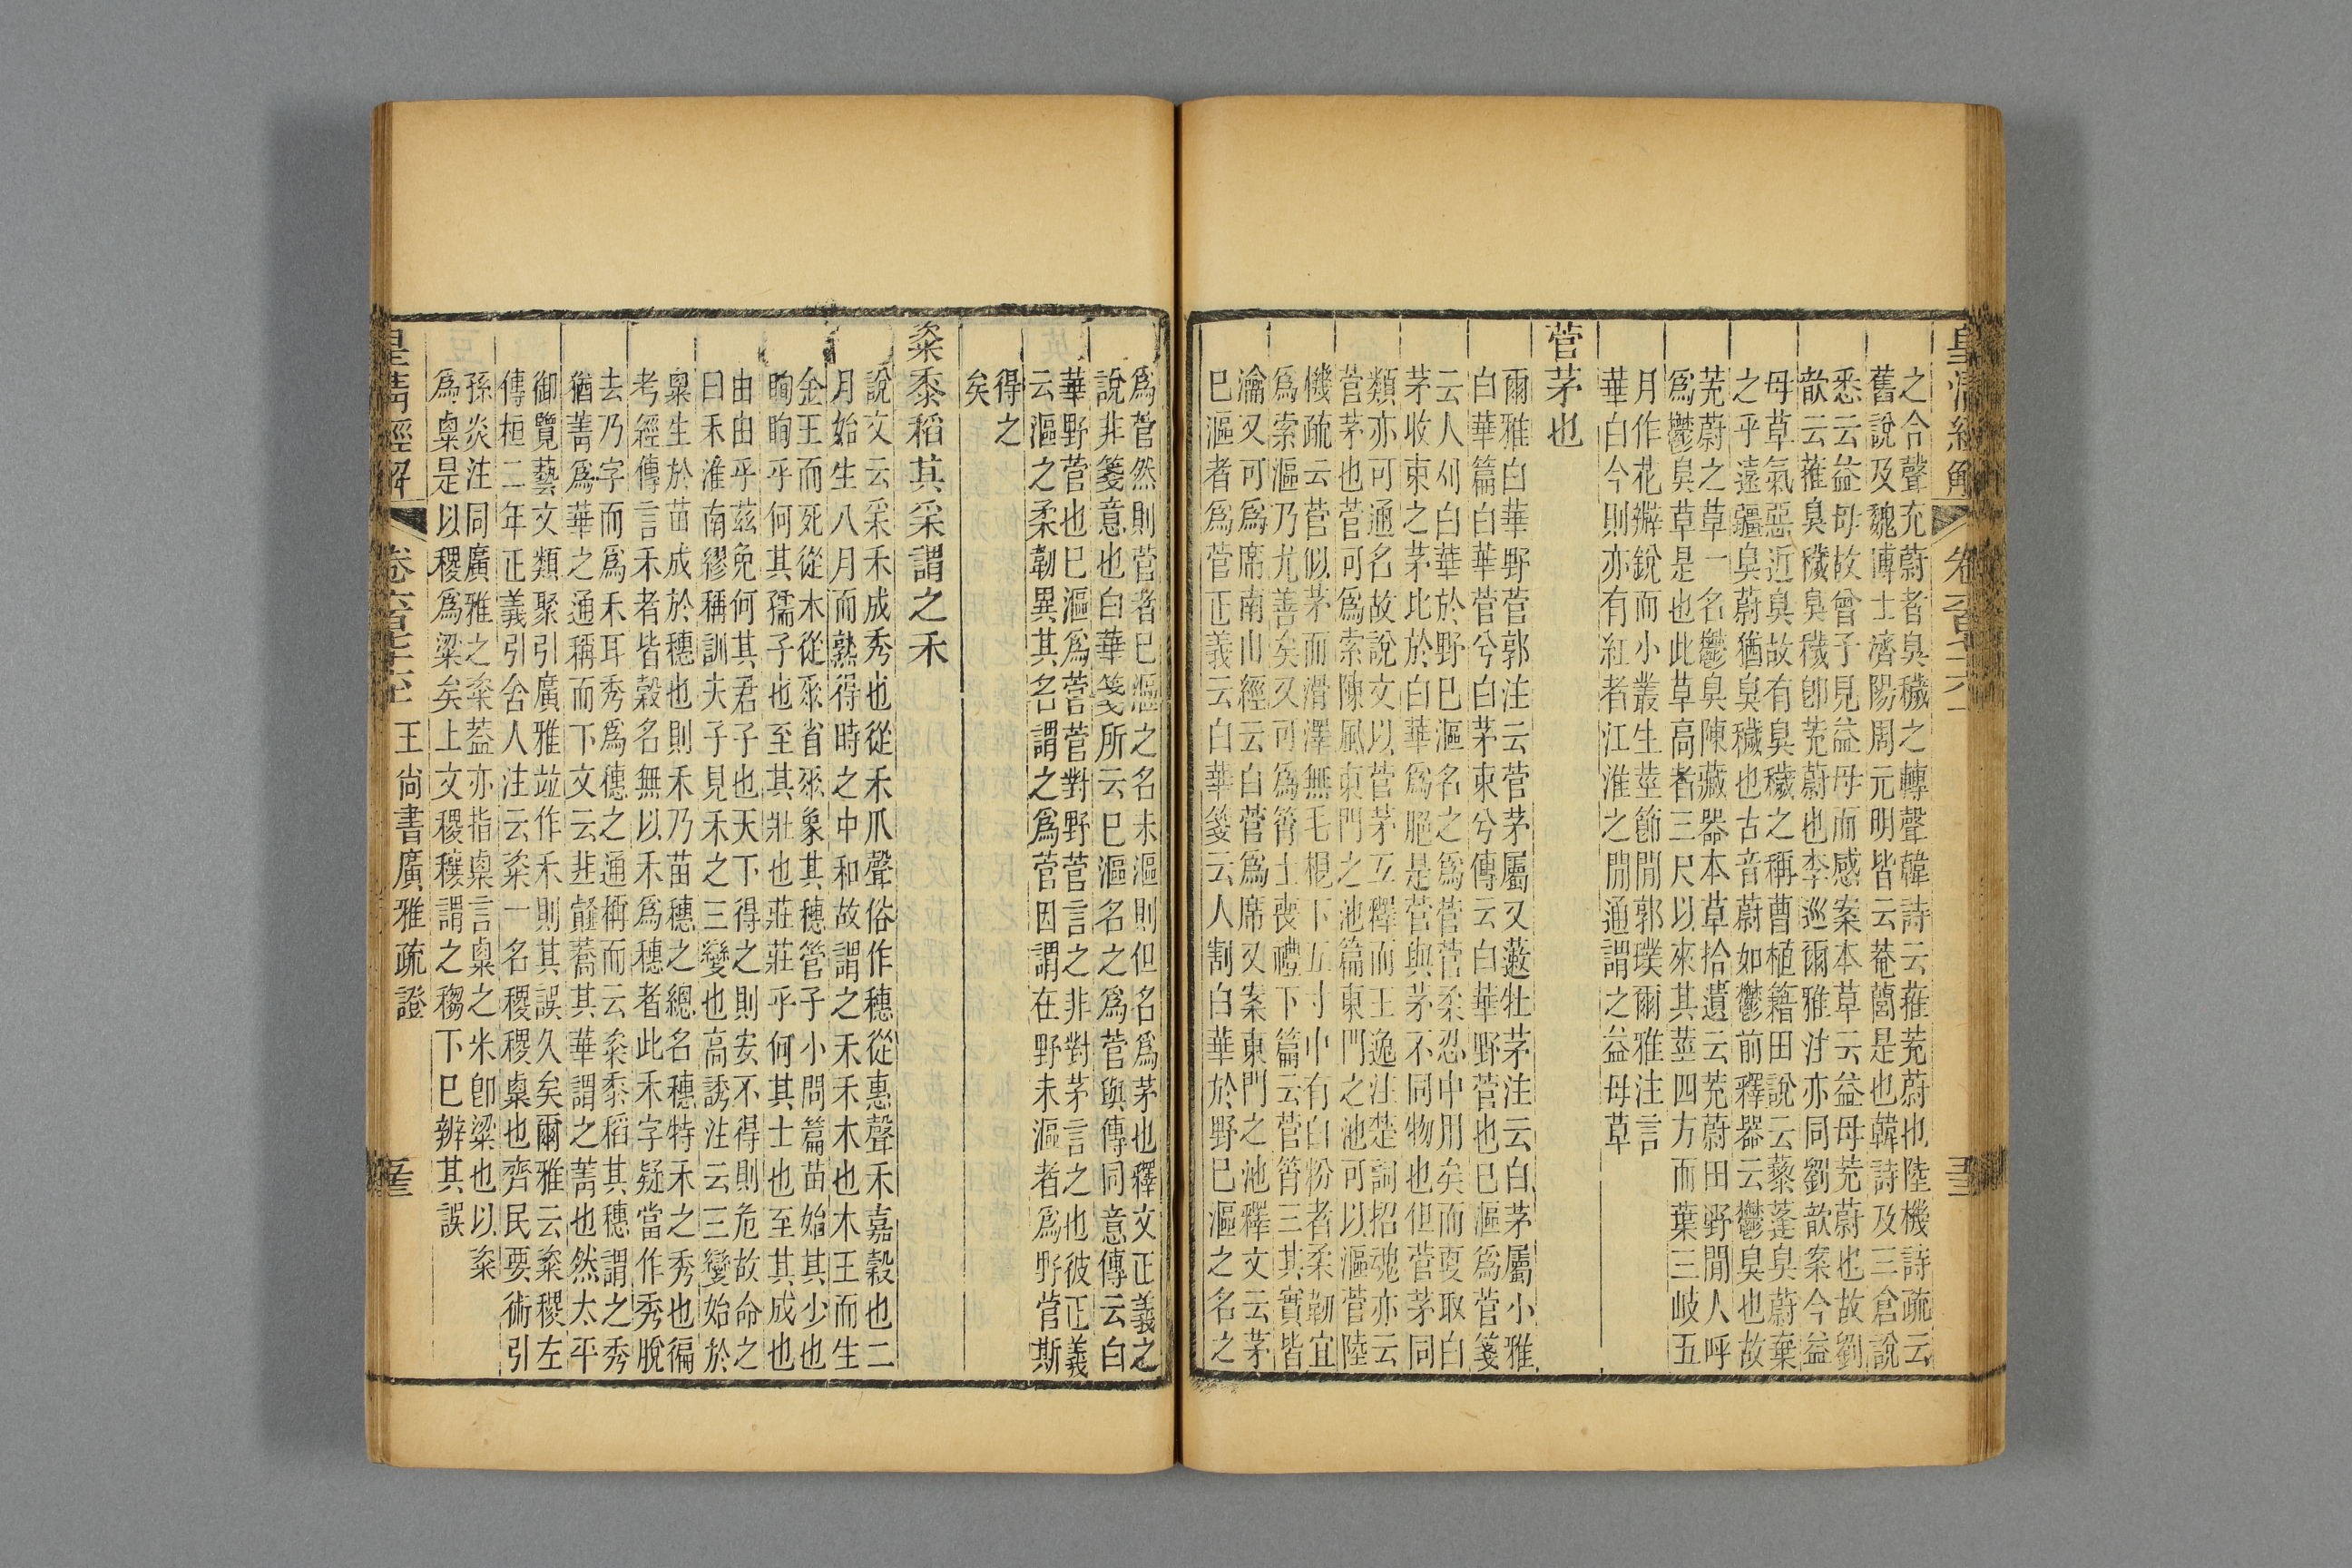 皇清經解
之合聲充蔚者臭穢之轉聲韓詩云蓷茺蔚也陸機詩疏云
舊說及魏博士濟陽周元明皆云菴䕡是也韓詩及三倉說
悉云益母故曾子見益母而感案本草云益母茺蔚也故劉
歆云蓷臭穢臭穢卽茺蔚也李巡爾雅注亦同劉歆案今益
母草氣惡近臭故有臭穢之稱曹植籍田說云藜蓬臭蔚棄
之乎遠疆臭蔚猶臭穢也古音蔚如鬱前釋器云鬱臭也故
茺蔚之草一名鬱臭陳藏器本草拾遺云茺蔚田野閒人呼
爲鬱臭草是也此草高者三尺以來其莖四方而葉三岐五
月作花瓣銳而小叢生莖節閒郭璞爾雅注言
華白今則亦有紅者江淮之閒通謂之益母草
菅茅也
爾雅白華野菅郭注云菅茅屬又藗牡茅注云白茅屬小雅
白華篇白華菅兮白茅束兮傳云白華野菅也已漚爲菅箋
云人刈白華於野已漚名之爲菅菅柔忍中用矣而更取白
茅收束之茅比於白華爲脆是菅與茅不同物也但菅茅同
類亦可通名故說文以菅茅互釋而王逸注楚詞招魂亦云
菅茅也菅可爲索陳風東門之池篇東門之池可以漚菅陸
機疏云菅似茅而滑澤無毛根下五寸中有白粉者柔韌宜
爲索漚乃尤善矣又可爲筲士喪禮下篇云菅筲三其實皆
瀹又可爲席南山經云白菅爲席又案東門之池釋文云茅
已漚者爲菅正義云白華箋云人割白華於野已漚之名之
爲菅然則菅者已漚之名未漚則但名爲茅也釋文正義之
說非箋意也白華箋所云已漚名之爲菅與傳同意傳云白
華野菅也已漚爲菅菅對野菅言之非對茅言之也彼正義
云漚之柔韌異其名謂之爲菅因謂在野未漚者爲野菅斯
得之
矣
粢黍稻其采謂之禾
說文云采禾成秀也從禾爪聲俗作穗從惠聲禾嘉穀也二
月始生八月而熟得時之中和故謂之禾禾木也木王而生
金王而死從木從𠂹省𠂹象其穗管子小問篇苗始其少也
眴眴乎何其孺子也至其壯也莊莊乎何其士也至其成也
由由乎茲免何其君子也天下得之則安不得則危故命之
曰禾淮南繆稱訓夫子見禾之三變也高誘注云三變始於
粟生於苗成於穗也則禾乃苗穗之總名穗特禾之秀也徧
考經傳言禾者皆穀名無以禾爲穗者此禾字疑當作秀脫
去乃字而爲禾耳秀爲穗之通稱而云粢黍稻其穗謂之秀
猶菁爲華之通稱而下文云韭䪥蕎其華謂之菁也然太平
御覽藝文類聚引廣雅竝作禾則其誤久矣爾雅云粢稷左
傳桓二年正義引舍人注云粢一名稷稷粟也齊民要術引
孫炎注同廣雅之粢蓋亦指粟言粟之米卽粱也以粢
爲粟是以稷爲粱矣上文稷穰謂之𥠻下已辨其誤
王尚書廣雅疏證
皇清經解